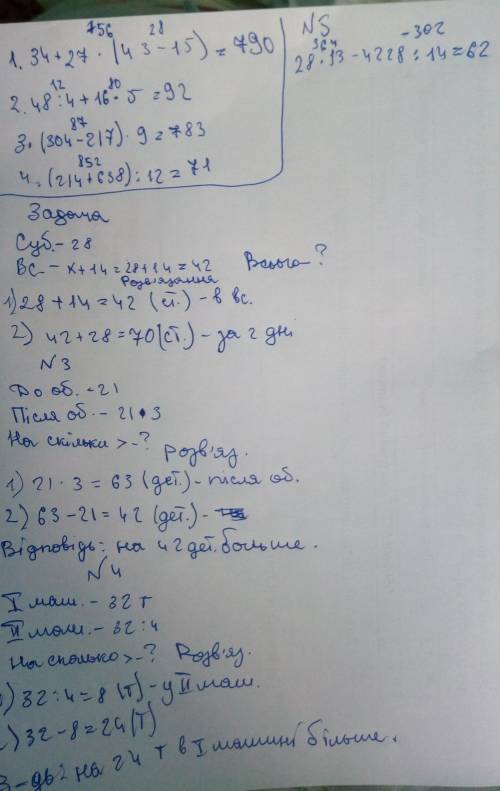 756 28
1. 34 + 27 · (43 - 15) = 790
12 80
2. 48 : 4 + 16 · 5 = 92
87
3. (304 - 217) · 9 = 783
852
4. (214 + 638) : 12 = 71
N5
364 -302
28 · 13 - 4228 : 14 = 62
Задача
Суб. - 28
Вс. - x + 14 = 28 + 14 = 42 Всього - ?
Розв'язання
1) 28 + 14 = 42 (ст.) - в вс.
2) 42 + 28 = 70 (ст.) - за 2 дні
N3
До об. - 21
Після об. - 21 · 3
На скільки > - ? Розв'яз.
1) 21 · 3 = 63 (дет.) - після об.
2) 63 - 21 = 42 (дет.) -
Відповідь: на 42 дет. больше.
N4
I маш. - 32 т
II маш. - 32 : 4
На сколько > - ? Розв'яз.
) 32 : 4 = 8 (т) - у II маш.
) 32 - 8 = 24 (т)
В-дь: на 24 т в I машині більше.